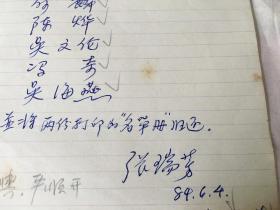 陈烨
吴文伦
冯奇
吴海燕
并将两份打印的"名单册"归还。
张瑞芳
84.6.4.
严顺开